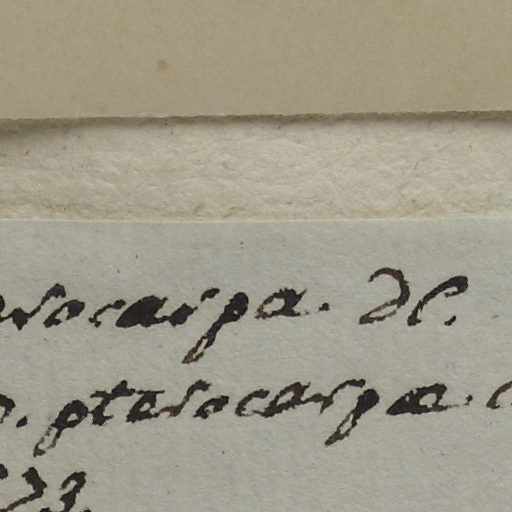 erocarpa. DC.
. pterocarpa.
73.